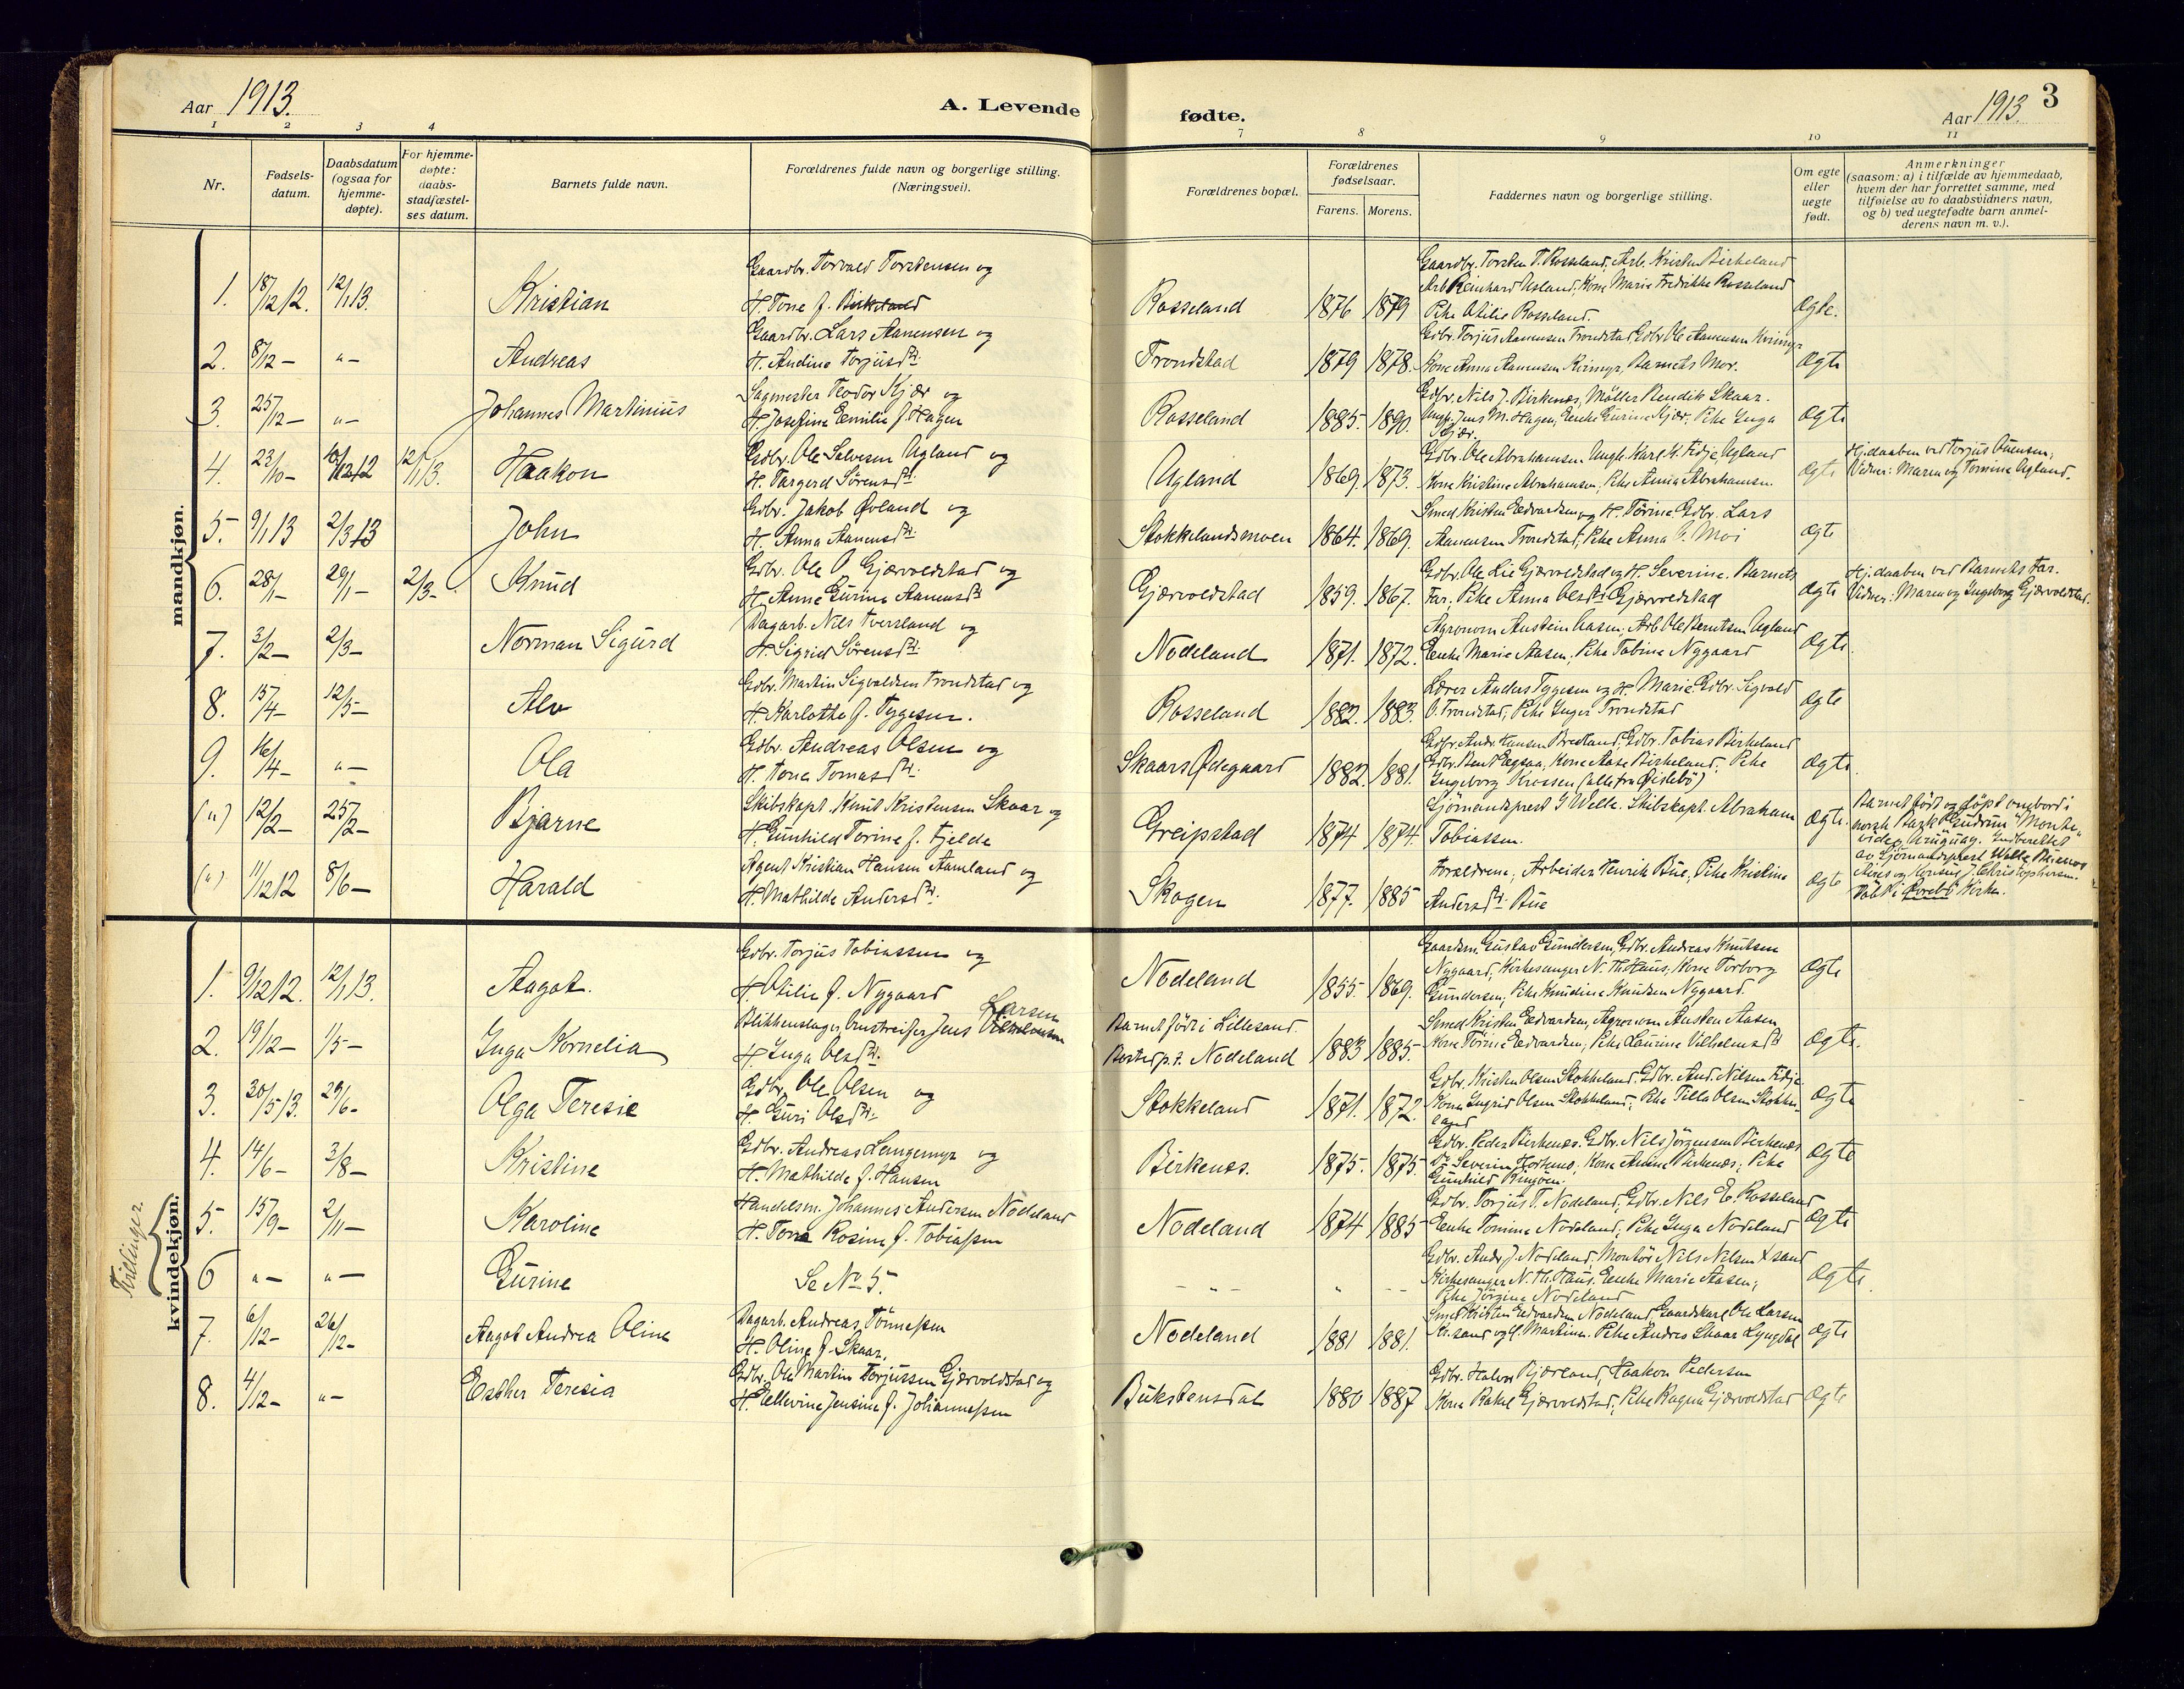 Aar 1913.
A. Levende
fødte.
Aar 1913.
3
1 2 3 4
7 8 9 10 11
Nr.
Fødsels-
datum.
Daabsdatum
(ogsaa for
hjemme-
døpte).
For hjemme-
døpte:
daabs-
stadfæstel-
ses datum.
Barnets fulde navn.
Forældrenes fulde navn og borgerlige stilling.
(Næringsvei).
Forældrenes bopæl.
Forældrenes
fødselsaar.
Farens. Morens.
Faddernes navn og borgerlige stilling.
Om egte
eller
uegte
født.
Anmerkninger
(saasom: a) i tilfælde av hjemmedaab,
hvem der har forrettet samme, med
tilføielse av to daabsvidners navn,
og b) ved uegtefødte barn anmel-
derens navn m. v.).
mandkjøn.
1. 18/12 12. 12/1 13. Kristian
Gaardbr. Torvald Torstensen og
H. Tone f. Birkeland
Rosseland 1876 1879
Gaardbr. Torsten T. Rosseland, Arb. Kristen Birkeland
Arb Reinhard Usland, Kone Marie Fredrikke Rosseland
Pike Otilie Rosseland.
Ægte.
2. 8/12 – „ – Andreas
Gaardbr. Lars Aanensen og
H. Andine Torjusdtr.
Trondstad 1879 1878.
Gdbr. Torjus Aanensen Trondstad, Gdbr. Ole Aanensen Kvimyr
Kone Anna Aanensen Kvimyr, Barnets Mor.
Ægte
3. 25/12 – „ – Johannes Martinius
Sagmester Teodor Kjær og
H. Josefine Emilie f. Hagen
Rosseland 1885. 1890.
Gdbr. Nils J. Birkenæs, Møller Rendik Skaar.
Ungk. Jens M. Hagen, Enke Gurine Kjær, Pike Inga
Kjær.
Ægte
4. 23/10 – 10/12 12 12/1 13. Haakon
Gdbr. Ole Salvesen Agland og
H. Targerd Sørensdtr.
Agland 1869. 1873.
Gdbr. Ole Abrahamsen Ungk. Karl K. Fidje, Agland
Kone Kristine Abrahamsen, Pike Anna Abrahamsen.
Ægte
Hj.daaben ved Torjus Ouensen,
Vidner: Maren og Tomine Agland.
5. 9/1 13 2/3 13 John
Gdbr. Jakob Øvland og
H. Anna Aanensdtr.
Stokkelandsmoen 1864. 1869.
Smed Kristen Edvardsen og H. Tørine, Gdbr. Lars
Aanensen Trondstad, Pike Anna O. Moi
Ægte
6. 28/1 – 29/1 – 2/3 – Knud
Gdbr. Ole O. Gjærvoldstad og
H. Anne Gurine Aanensdtr
Gjærvoldstad 1859. 1867.
Gdbr. Ole Lie Gjærvoldstad og H. Severine. Barnets
Far, Pike Anna Olsdtr Gjærvoldstad
Ægte
Hj.daaben ved Barnets Far.
Vidner: Maren og Ingeborg Gjærvoldstad.
7. 3/2 – 2/3 – Norman Sigurd
Dagarb. Nils Tversland og
H. Sigrid Sørensdtr.
Nodeland 1871. 1872.
Agronom Austein Aasen, Arb Ole Berntsen Agland
Enke Marie Aasen, Pike Tobine Nygaard
Ægte.
8. 15/4 – 12/5 – Alv
Gdbr. Martin Sigvaldsen Trondstad og
H. Karlotte f. Tygesen.
Rosseland 1882. 1883.
Lærer Anders Tygesen og H. Marie. Gdbr. Sigvald
O. Trondstad, Pike Inger Trondstad
Ægte
9. 16/4 – „ – Ola
Gdbr. Andreas Olsen og
H. Tona Tomasdtr.
Skaars Ødegaard 1882. 1881.
Gdbr. Andr. Hansen Brædland, Gdbr. Tobias Birkeland
Gdbr. Bent Egsaa, Kone Aase Birkeland, Pike
Ingeborg Krossen (alle fra Øislebø)
Ægte.
(„) 12/2 – 25/2 – Bjarne
Skibskapt. Knut Kristensen Skaar og
H. Gunhild Torine f. Fjelde
Greipstad 1874 1874.
Sjømandsprest G Welle. Skibskapt. Abraham
Tobiassen.
Ægte.
Barnet født og døpt ombord i
norsk Bark "Gudrun" Monte-
video, Uruguay. Indberettet
av Sjømandsprest Welle Buenos
Aires og Konsul J. Christophersen.
(„) 11/12 12 8/6 – Harald
Agent Kristian Hansen Aamland og
H. Mathilde Andersdtr.
Skogen 1877. 1885
Forældrene, Arbeider Henrik Bue, Pike Kristine
Andersdtr. Bue
Ægte
Døbt i Øvrebø Kirke.
kvindekjøn.
1. 9/12 12. 12/1 13. Aagot.
Gdbr. Torjus Tobiassen og
H. Otilie f. Nygaard
Nodeland 1855. 1869.
Gaardm. Gustav Gundersen, Gdbr. Andreas Knutsen
Nygaard, Kirkesanger N. Th. Haus, Kone Torborg
Gundersen, Pike Knudine Knudsen Nygaard.
Ægte
2. 19/12 – 1/5 – Inga Kornelia
Larsen
Blikkenslager, Omstreifer Jens
H. Inga Olsdtr.
Barnet født i Lillesand.
Bosted p.t. Nodeland 1883 1885.
Smed Kristen Edvardsen, Agronom Austen Aasen
Kone Tørine Edvardsen, Pike Laurine Vilhelmsdtr
Ægte.
3. 30/5 13. 29/6 – Olga Teresie
Gdbr. Ole Olsen og
H. Guri Olsdtr.
Stokkeland 1871. 1872
Gdbr. Kristen Olsen Stokkeland. Gdbr. And. Nilsen Fidje
Kone Ingrid Olsen Stokkeland, Pike Tilla Olsen Stokke-
land
Ægte
4. 14/6 – 3/8 – Kristine
Gdbr. Andreas Langemyr og
H. Mathilde f. Hansen
Birkenæs. 1875. 1875.
Gdbr. Peder Birkenæs. Gdbr. Nils Jørgensen Birkenæs
Do Severin Hortemo, Kone Amine Birkenæs, Pike
Gunhild
Ægte
Tvillinger.
5. 15/9 – 2/11 – Karoline
Handelsm. Johannes Andersen Nodeland
H. Tona Rosine f. Tobiassen
Nodeland 1874 1885
Gdbr. Torjus T. Nodeland, Gdbr. Nils E. Rosseland
Enke Tomine Nodeland, Pike Inga Nodeland
Ægte
6 „ – „ – Gurine
Se No 5.
– „ – „ – –
Gdbr. Andr. J. Nodeland, Montør Nils Nilsen Xsand
Kirkesanger N. Th. Haus. Enke Marie Aasen,
Pike Jørgine Nodeland
Ægte
7. 6/12 – 26/12 – Aagot Andrea Oline
Dagarb. Andreas Tønnessen
H. Oline f. Skaar.
Nodeland 1881 1881.
Smed Kristen Edvardsen Nodeland, Gaardskarl Ole Larsen
Kr.sand og H. Martine. Pike Andrea Skaar Lyngdal
Ægte
8. 4/12 – „ – Esther Teresia
Gdbr. Ole Martin Torjussen Gjærvoldstad og
H. Ellevine Jensine f. Johannessen
Bukstensdal 1880 1887
Gdbr. Halvor Bjørland, Haakon Pedersen
Kone Rakel Gjærvoldstad, Pike Ragna Gjærvoldstad
Ægte